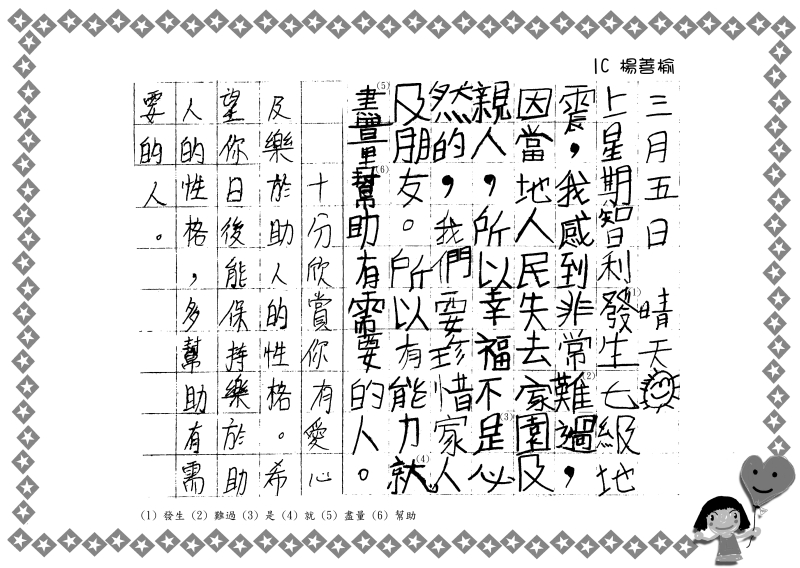 1C 楊善榆
三月五日 晴天
上星期智利(1)發生七級地
震，我感到非常(2)難過，
因當地人民失去家園及
親人，所以幸福不(3)是必
然的，我們要珍惜家人
及朋友。所以有能力(4)就
(5)盡量(6)幫助有需要的人。
十分欣賞你有愛心
及樂於助人的性格。希
望你日後能保持樂於助
人的性格，多幫助有需
要的人。
(1) 發生 (2) 難過 (3) 是 (4) 就 (5) 盡量 (6) 幫助